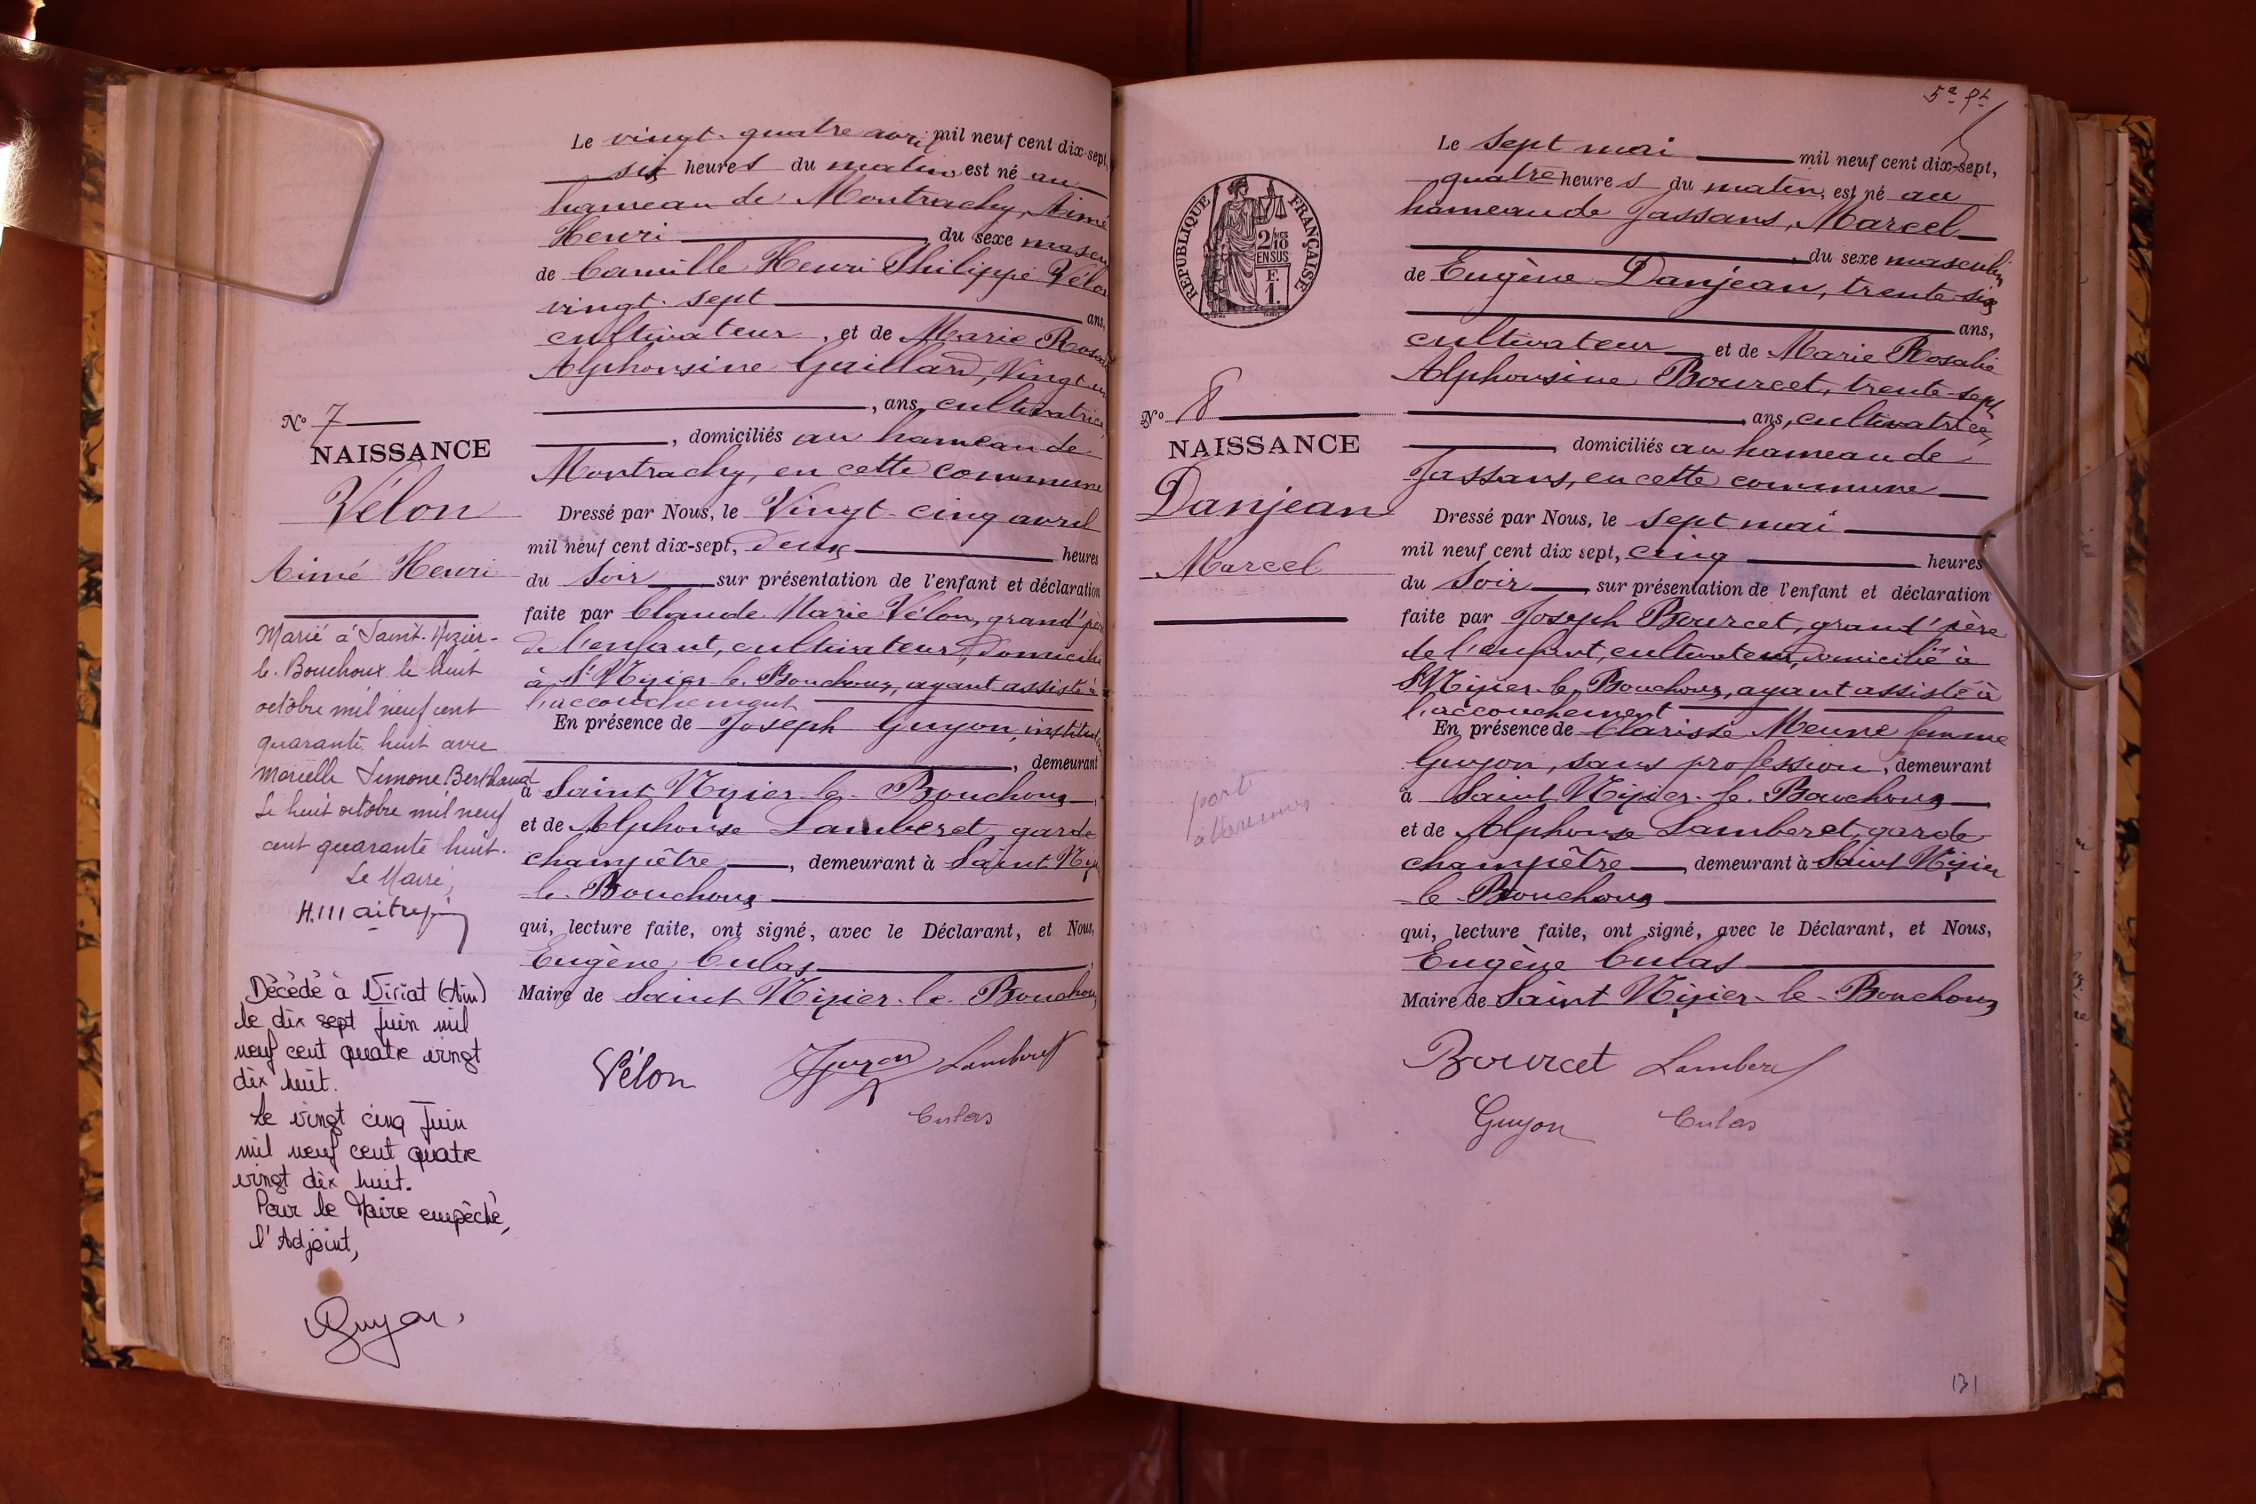 Le vingt-quatre avril mil neuf cent dix-sept,
six heures du matin, est né au
hameau de Montrachy, Aimé
Henri du sexe mascu
de Camille Henri Philippe Vélon
vingt-sept ans,
cultivateur, et de Marie Rosalie
Alphonsine Gaillard, Vingt un
, ans, cultivatrice,
, domiciliés au hameau de
Montrachy, en cette commune
Dressé par Nous, le Vingt-cinq avril
mil neuf cent dix-sept, deux heures
du Soir sur présentation de l'enfant et déclaration
faite par Claude Marie Vélon, grand'père
de l'enfant, cultivateur, domicilié
à St Nizier-le-Bouchoux, ayant assisté à
l'accouchement
En présence de Joseph Guyon, instituteur
, demeurant
à Saint Nizier-le-Bouchoux,
et de Alphonse Lamberet, garde
champêtre, demeurant à Saint Nizier
le-Bouchoux
qui, lecture faite, ont signé, avec le Déclarant, et Nous,
Eugène Culas,
Maire de Saint Nizier-le-Bouchoux
Vélon Guyon Lamberet
Culas
N° 7
NAISSANCE
Vélon
Aimé Henri
Marié à Saint-Nizier-
le-Bouchoux le huit
octobre mil neuf cent
quarante huit avec
Marielle Simone Berthaud
Le huit octobre mil neuf
cent quarante huit.
Le Maire,
Décédé à Viriat (Ain)
le dix sept Juin mil
neuf cent quatre vingt
dix huit.
Le vingt cinq Juin
mil neuf cent quatre
vingt dix huit.
Pour le Maire empêché,
l'Adjoint,
Guyon
5e ft
Le sept mai mil neuf cent dix-sept,
quatre heures du matin, est né au
hameau de Jassans, Marcel
, du sexe masculin
de Eugène Danjean, trente-six
ans,
cultivateur et de Marie Rosalie
Alphonsine Bourcet, trente-sept
ans, cultivatrice,
domiciliés au hameau de
Jassans, en cette commune
Dressé par Nous, le sept mai
mil neuf cent dix sept, cinq heures
du Soir, sur présentation de l'enfant et déclaration
faite par Joseph Bourcet, grand'père
de l'enfant, cultivateur, domicilié à
St Nizier-le-Bouchoux, ayant assisté à
l'accouchement
En présence de Clarisse Meune femme
Guyon, sans profession, demeurant
à Saint Nizier-le-Bouchoux
et de Alphonse Lamberet, garde
champêtre, demeurant à Saint Nizier
le Bouchoux
qui, lecture faite, ont signé, avec le Déclarant, et Nous,
Eugène Culas
Maire de Saint Nizier-le-Bouchoux
Bourcet Lamberet
Guyon Culas
REPUBLIQUE FRANÇAISE
2/10
EN SUS
F.
1.
N° 8
NAISSANCE
Danjean
Marcel
131